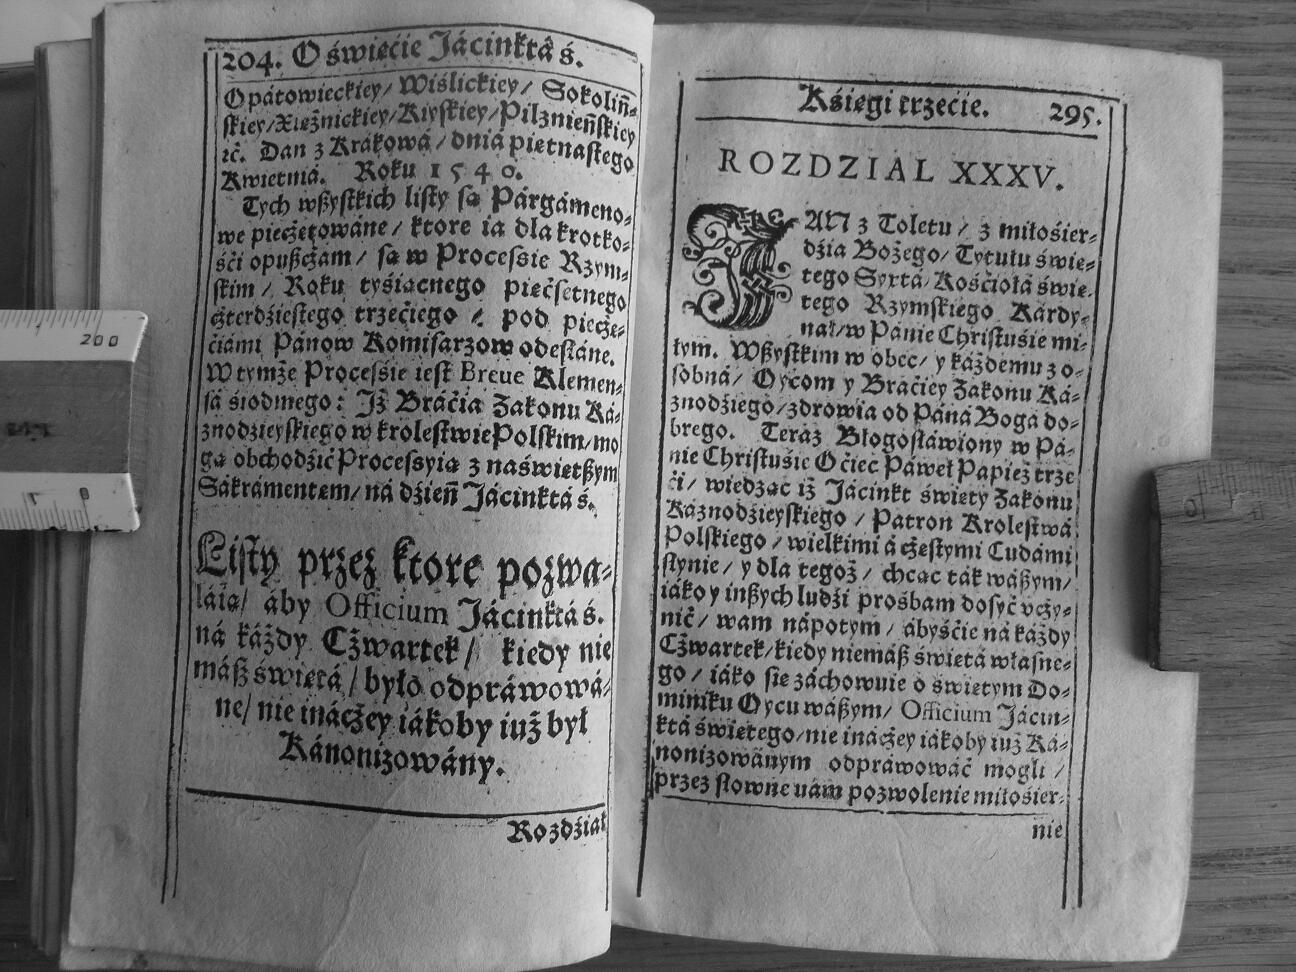 204. O świećie Jácinktá ś.
Opátowieckiey/ Wiślickiey/ Sokoliń-
skiey/Xiężnickiey/Kiyskiey/Pilznieńskiey
ꝛč. Dan z Krákowá/dniá piętnastego
Kwietniá. Roku 1540.
Tych wßystkich listy są Párgámeno-
we pieczętowáne/ ktore ia dla krotko-
śći opußczam/ są w Processie Rzym-
skim/ Roku tysiącnego pięćsetnego
czterdźiestego trzećiego/ pod pieczę-
ćiámi Pánow Komisarzow odesłáne.
W tymże Processie iest Breue Klemen-
sá siodmego: Jż Bráćia Zakonu Ká-
znodźieyskiego w krolestwie Polskim/mo
gą obchodźić Processyią z naświetßym
Sákrámentem/ná dźień Jácinktá ś.
Listy przez ktore pozwa-
láią/ áby Officium Jácinktá ś.
ná káżdy Czwartek/ kiedy nie
máß świętá/było odpráwowá-
ne/ nie ináczey iákoby iuż był
Kánonizowány.
Rozdźiał
Kśięgi trzećie. 295.
ROZDZIAL XXXV.
JAN z Toletu/ z miłośier-
dźia Bożego/ Tytułu świę-
tego Syxtá/Kośćiołá świę-
tego Rzymskiego Kárdy-
nał/w Pánie Christuśie mi-
łym. Wßystkim w obec/ y káżdemu z o-
sobná/ Oycom y Bráćiey Zakonu Ká-
znodźiego/zdrowia od Páná Bogá do-
brego. Teraz Błogosłáwiony w Pá-
nie Christuśie Oćiec Páweł Papież trze
ći/ wiedząc iż Jácinkt święty Zakonu
Káznodźieyskiego/ Patron Krolestwá
Polskiego/ wielkimi á częstymi Cudámi
słynie/ y dla tegoż/ chcąc ták wáßym/
iáko y inßych ludźi prośbam dosyć vczy-
nić/ wam nápotym/ ábyśćie ná káżdy
Czwartek/kiedy niemáß świętá własne-
go/ iáko się záchowuie o świętym Do-
miniku Oycu wáßym/ Officium Jácin-
ktá świętego/nie ináczey iákoby iuż Ká-
nonizowánym odpráwowáć mogli/
przez słowne nám pozwolenie miłośier-
nie
200
0